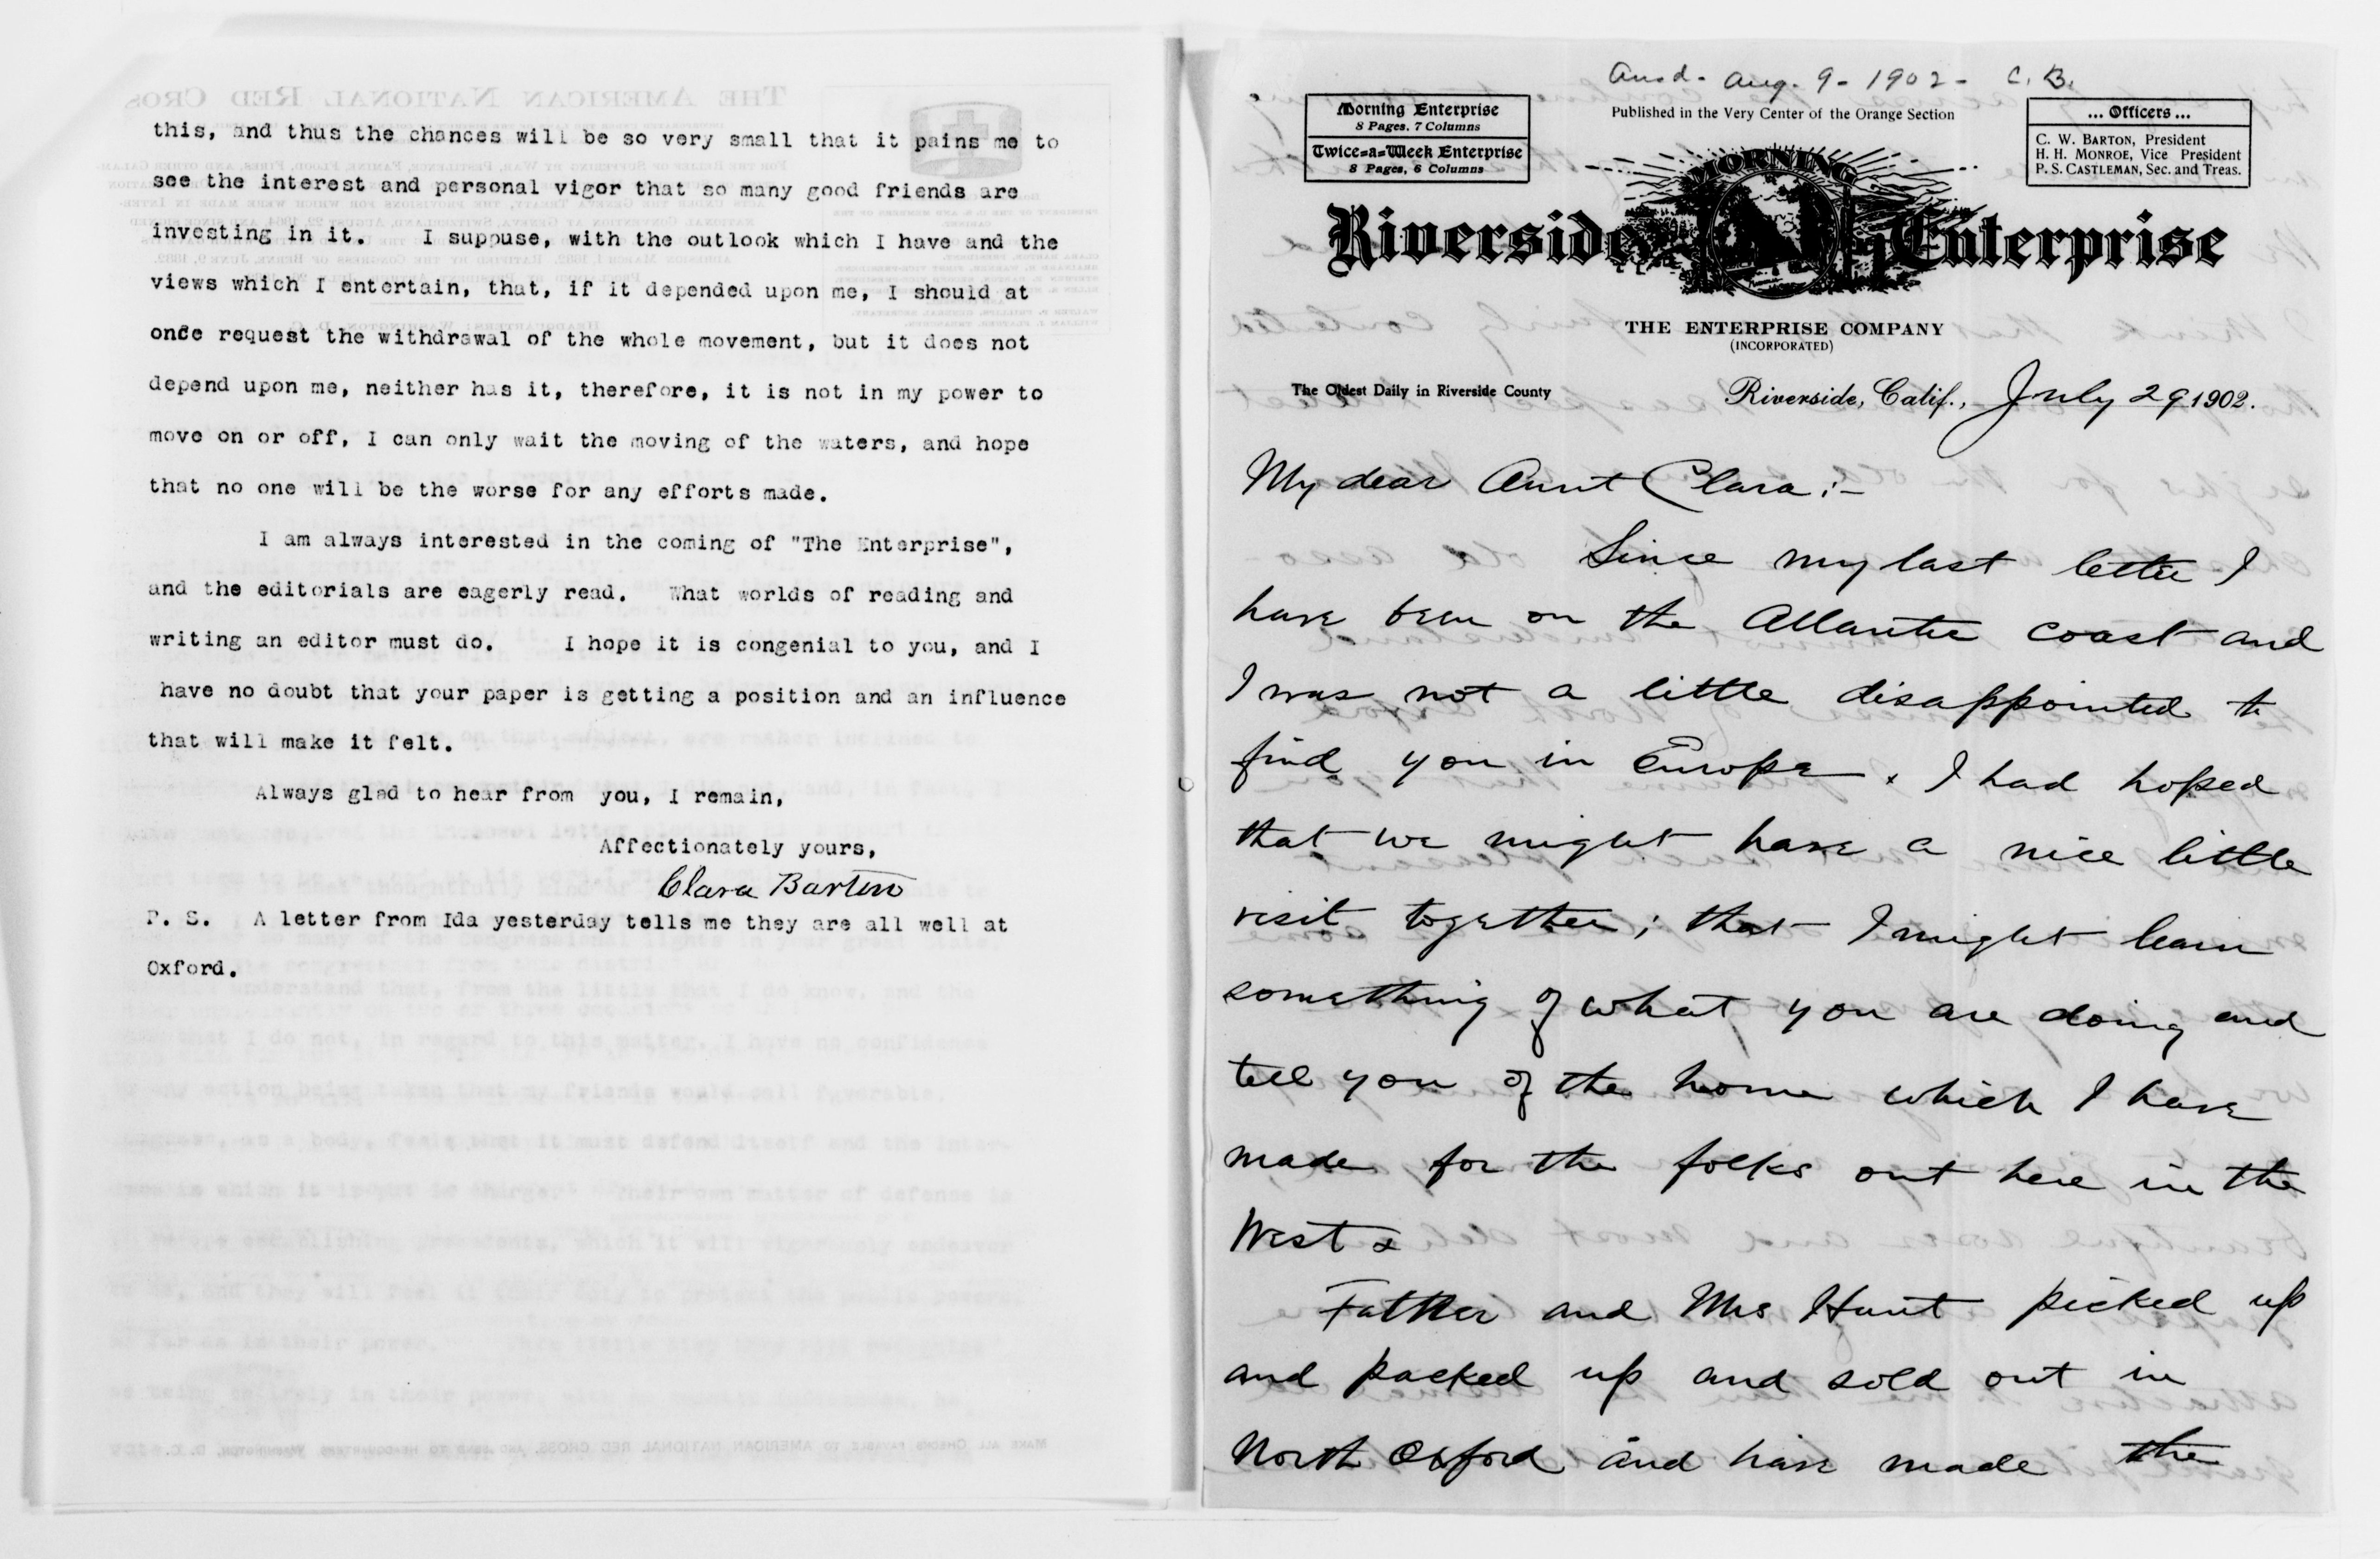 this, and thus the chances will be so very small that it pains me to
see the interest and personal vigor that so many good friends are
investing in it. I suppuse, with the outlook which I have and the
views which I entertain, that, if it depended upon me, I should at
once request the withdrawal of the whole movement, but it does not
depend upon me, neither has it, therefore, it is not in my power to
move on or off, I can only wait the moving of the waters, and hope
that no one will be the worse for any efforts made.
I am always interested in the coming of "The Enterprise",
and the editorials are eagerly read. What worlds of reading and
writing an editor must do. I hope it is congenial to you, and I
have no doubt that your paper is getting a position and an influence
that will make it felt.
Always glad to hear from you, I remain,
Affectionately yours,
Clara Barton
P. S. A letter from Ida yesterday tells me they are all well at
Oxford.
Ansd. Aug. 9 - 1902 - C. B.
Morning Enterprise
8 Pages. 7 Columns
Twice=a=Week Enterprise
8 Pages, 6 Columns
Published in the Very Center of the Orange Section
... Officers ...
C. W. BARTON, President
H. H. MONROE, Vice President
P. S. CASTLEMAN, Sec. and Treas.
MORNING
Riverside Enterprise
THE ENTERPRISE COMPANY
(INCORPORATED)
The Oldest Daily in Riverside County
Riverside, Calif., July 29 1902.
My dear Aunt Clara:-
Since my last letter I
have been on the Atlantic coast and
I was not a little disappointed to
find you in Europe. I had hoped
that we might have a nice little
visit together; that I might learn
something of what you are doing and
tell you of the home which I have
made for the folks out here in the
West.
Father and Mrs Hunt picked up
and packed up and sold out in
North Oxford and have made the